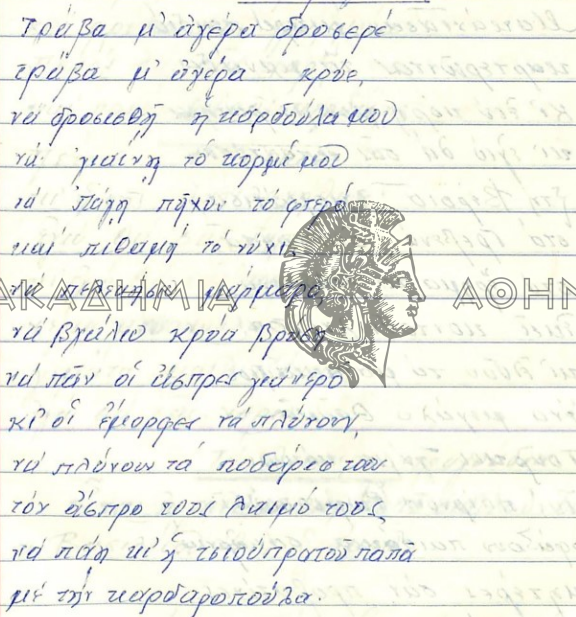 Τράβα μ' ἀγέρα δροσερέ
τράβα μ' ἀγέρα κρύε,
νά δροσισθῆ ἡ καρδούλα μου
νά γιαίνη τό κορμί μου
νά πάγη πῆχυς τό φτερό
καί πιθαμή τό νύχι,
νά πελεκήσω μάρμαρο,
νά βγάλω κρύα βρύση
νά πᾶν οἱ ἄσπρες γιά νερό
κι' οἱ ἔμορφες νά πλύνουν,
νά πλύνουν τά ποδάρια τους
τόν ἄσπρο τους λαιμό τους,
νά πάη κι' ἡ τσιούπρα τοῦ παπᾶ
μέ τήν καρδαροπούλα.
ΑΚΑΔΗΜΙΑ ΑΘΗΝ